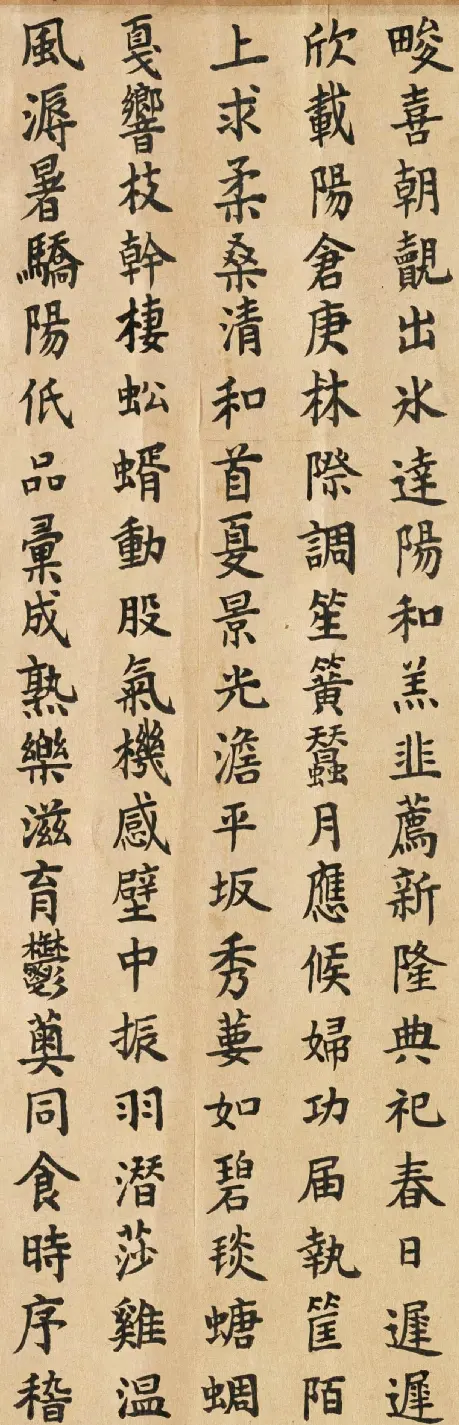 畯喜朝覿出氷達陽和羔韭薦新隆典祀春日遲遲
欣載陽倉庚林際調笙簧蠶月應候婦功届執筐陌
上求柔桑清和首夏景光澹平坂秀葽如碧琰螗蜩
戛響枝幹棲蚣蝑動股氣機感壁中振羽潛莎雞温
風溽暑驕陽低品彙成熟樂滋育鬱薁同食時序稽